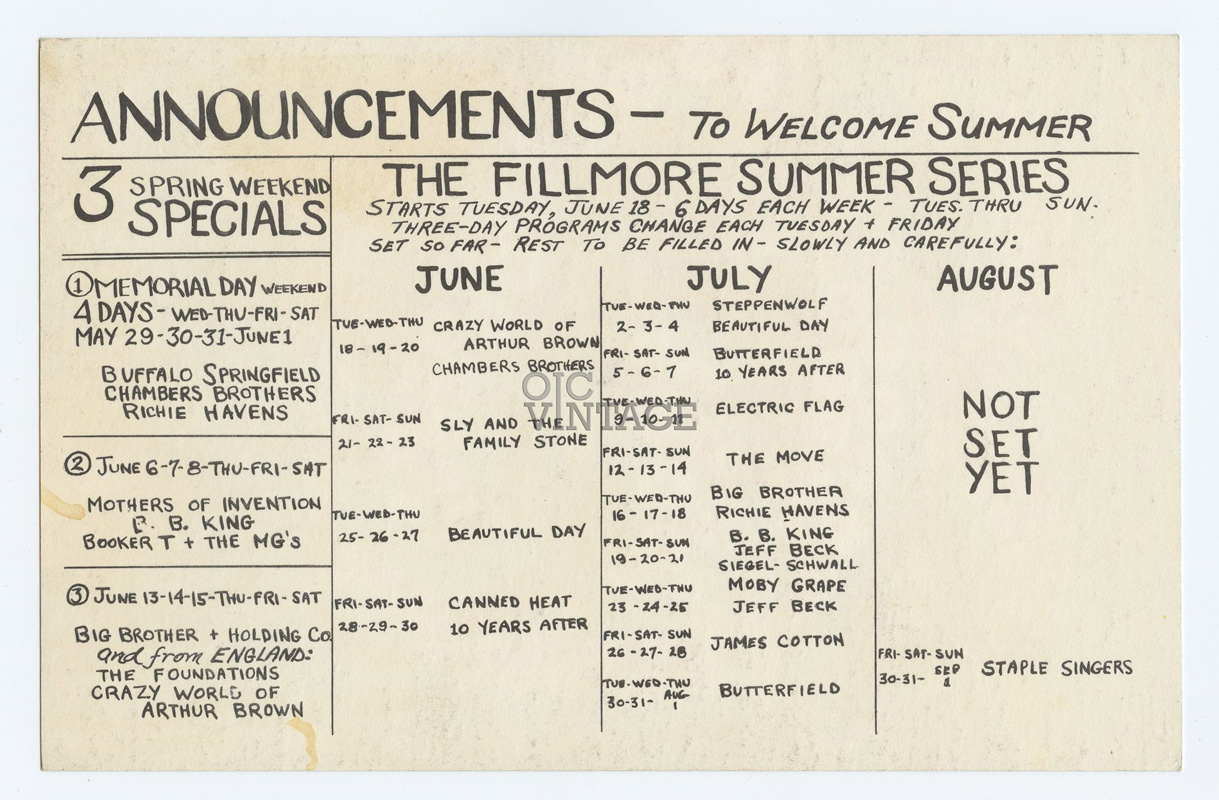 ANNOUNCEMENTS - TO WELCOME SUMMER
3 SPRING WEEKEND
SPECIALS
① MEMORIAL DAY WEEKEND
4 DAYS - WED-THU-FRI-SAT
MAY 29-30-31-JUNE 1
BUFFALO SPRINGFIELD
CHAMBERS BROTHERS
RICHIE HAVENS
② JUNE 6-7-8-THU-FRI-SAT
MOTHERS OF INVENTION
B. B. KING
BOOKER T + THE MG'S
③ JUNE 13-14-15-THU-FRI-SAT
BIG BROTHER + HOLDING CO.
and from ENGLAND:
THE FOUNDATIONS
CRAZY WORLD OF
ARTHUR BROWN
THE FILLMORE SUMMER SERIES
STARTS TUESDAY, JUNE 18 - 6 DAYS EACH WEEK - TUES. THRU SUN.
THREE-DAY PROGRAMS CHANGE EACH TUESDAY + FRIDAY
SET SO FAR - REST TO BE FILLED IN - SLOWLY AND CAREFULLY:
JUNE
TUE-WED-THU CRAZY WORLD OF
18-19-20 ARTHUR BROWN
CHAMBERS BROTHERS
FRI-SAT-SUN SLY AND THE
21-22-23 FAMILY STONE
TUE-WED-THU
25-26-27 BEAUTIFUL DAY
FRI-SAT-SUN CANNED HEAT
28-29-30 10 YEARS AFTER
JULY
TUE-WED-THU STEPPENWOLF
2-3-4 BEAUTIFUL DAY
FRI-SAT-SUN BUTTERFIELD
5-6-7 10 YEARS AFTER
TUE-WED-THU ELECTRIC FLAG
9-10-11
FRI-SAT-SUN THE MOVE
12-13-14
TUE-WED-THU BIG BROTHER
16-17-18 RICHIE HAVENS
FRI-SAT-SUN B. B. KING
19-20-21 JEFF BECK
SIEGEL-SCHWALL
TUE-WED-THU MOBY GRAPE
23-24-25 JEFF BECK
FRI-SAT-SUN JAMES COTTON
26-27-28
TUE-WED-THU BUTTERFIELD
30-31-AUG 1
AUGUST
NOT
SET
YET
FRI-SAT-SUN STAPLE SINGERS
30-31-SEP 1
OJC
VINTAGE